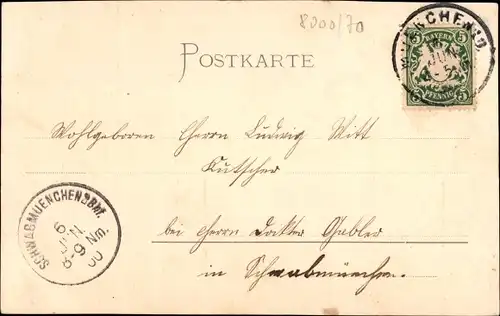 8000/70
MUENCHEN
JUN
BAYERN
5 5
PFENNIG
POSTKARTE
Wohlgeboren Herrn Ludwig Witt
Kutscher
bei Herrn Doktor Gabler
in Schwabmünchen.
SCHWABMUENCHEN Bhf.
6
JUN.
8-9 Nm.
00